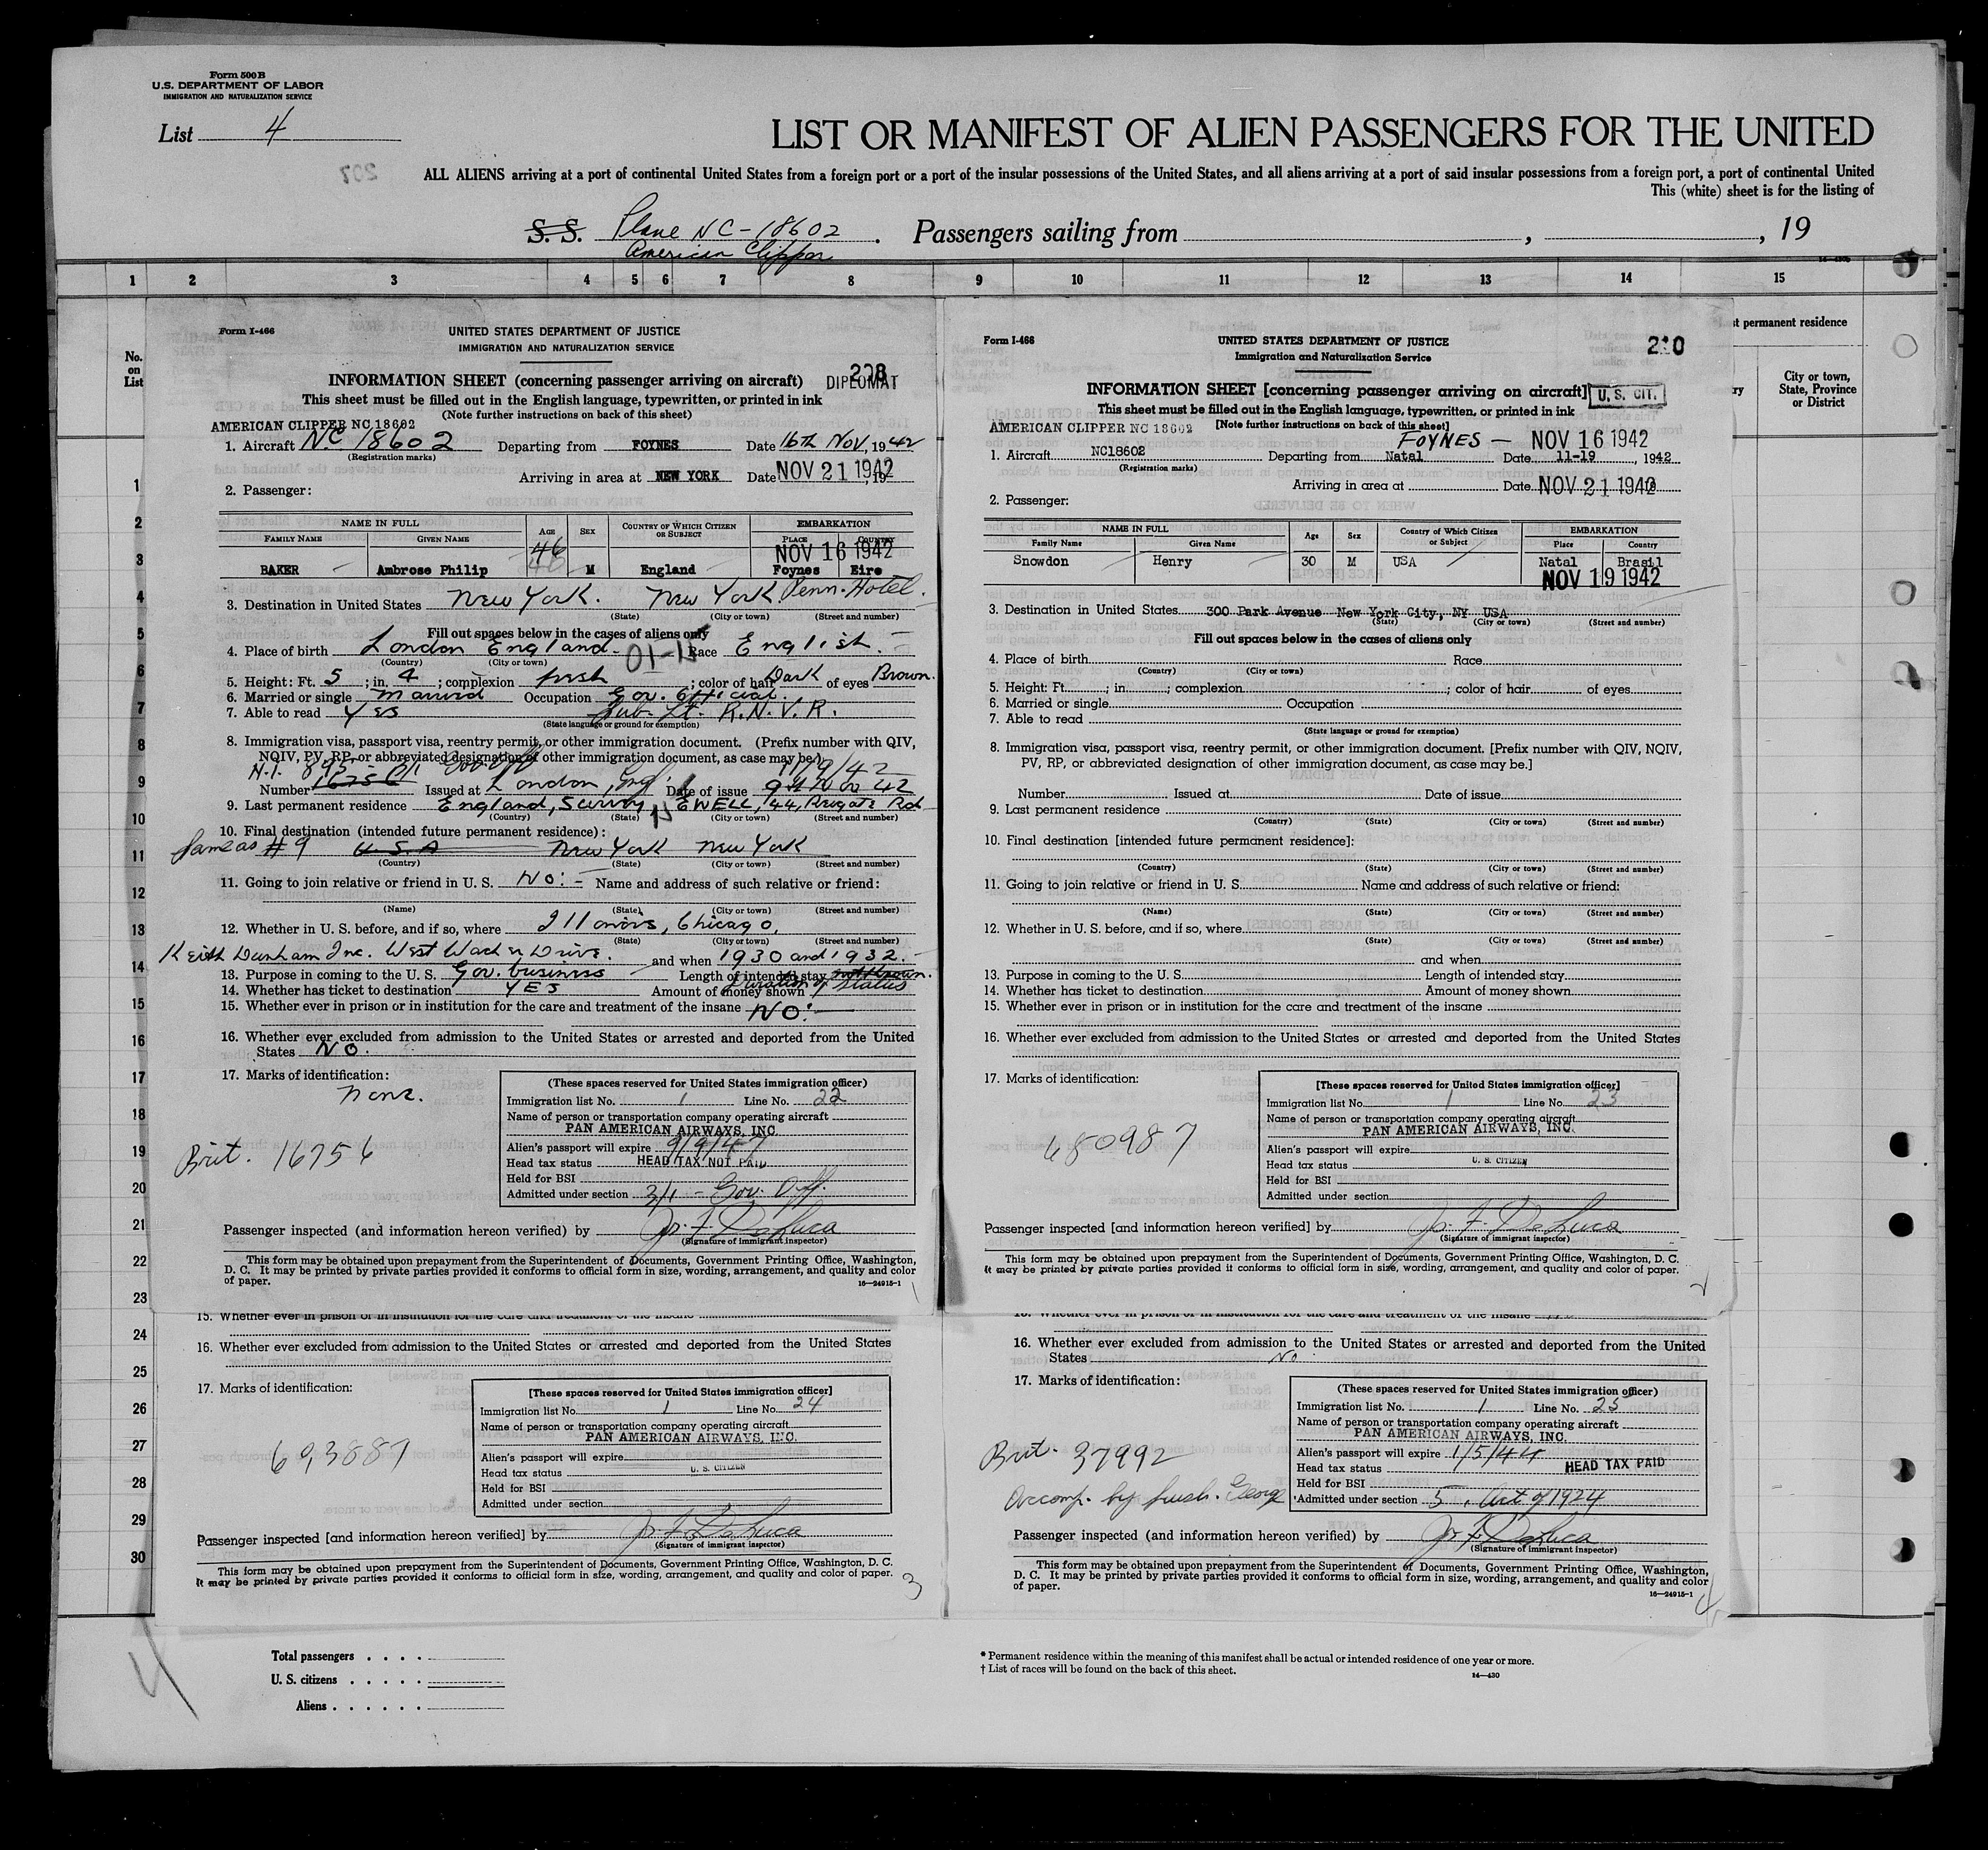 Form 500 B
U.S. DEPARTMENT OF LABOR
IMMIGRATION AND NATURALIZATION SERVICE
List 4
LIST OR MANIFEST OF ALIEN PASSENGERS FOR THE UNITED
207
ALL ALIENS arriving at a port of continental United States from a foreign port or a port of the insular possessions of the United States, and all aliens arriving at a port of said insular possessions from a foreign port, a port of continental United
This (white) sheet is for the listing of
S. S. Plane NC-18602 . Passengers sailing from , , 19
American Clipper
1 2 3 4 5 6 7 8 9 10 11 12 13 14 15
No. on List
t permanent residence
City or town, State, Province or District
1
2
3
4
5
6
7
8
9
10
11
12
13
14
15
16
17
18
19
20
21
22
23
24
25
26
27
28
29
30
Form I-466
UNITED STATES DEPARTMENT OF JUSTICE
IMMIGRATION AND NATURALIZATION SERVICE
208
INFORMATION SHEET (concerning passenger arriving on aircraft) DIPLOMAT
This sheet must be filled out in the English language, typewritten, or printed in ink
(Note further instructions on back of this sheet)
AMERICAN CLIPPER NC 18602
1. Aircraft NC 18602 Departing from FOYNES Date 16th Nov, 1942
(Registration marks)
Arriving in area at NEW YORK Date NOV 21 1942, 19
2. Passenger:
NAME IN FULL AGE SEX COUNTRY OF WHICH CITIZEN OR SUBJECT EMBARKATION
FAMILY NAME GIVEN NAME PLACE COUNTRY
46 NOV 16 1942
BAKER Ambrose Philip 46 M England Foynes Eire
3. Destination in United States New York. New York. Penn. Hotel.
(State) (City or town) (Street and number)
Fill out spaces below in the cases of aliens only
4. Place of birth London England Race English.
(Country) (City or town)
5. Height: Ft. 5 ; in. 4 ; complexion fresh ; color of hair Dark of eyes Brown.
6. Married or single Married Occupation Gov. Official.
7. Able to read Yes Sub. Lt. R.N.V.R.
(State language or ground for exemption)
8. Immigration visa, passport visa, reentry permit, or other immigration document. (Prefix number with QIV,
NQIV, PV, RP, or abbreviated designation of other immigration document, as case may be.)
11/9/42
Number Issued at London, Eng. Date of issue 9th Nov 42
9. Last permanent residence England, Surrey, EWELL, 44, Reigate Rd
(Country) (State) (City or town) (Street and number)
10. Final destination (intended future permanent residence):
Same as #9 U.S.A New York New York
(Country) (State) (City or town) (Street and number)
11. Going to join relative or friend in U. S. No:- Name and address of such relative or friend:
(Name) (State) (City or town) (Street and number)
12. Whether in U. S. before, and if so, where Illonois, Chicago,
(State) (City or town) (Street and number)
Keith Dunham Inc. West Wacker Drive. and when 1930 and 1932.
13. Purpose in coming to the U. S. Gov. business Length of intended stay not known.
Duration of status
14. Whether has ticket to destination YES Amount of money shown
15. Whether ever in prison or in institution for the care and treatment of the insane NO:-
16. Whether ever excluded from admission to the United States or arrested and deported from the United
States NO.
17. Marks of identification:
None.
Brit. 16756
(These spaces reserved for United States immigration officer)
Immigration list No. 1 Line No. 22
Name of person or transportation company operating aircraft
PAN AMERICAN AIRWAYS, INC
Alien's passport will expire 9/9/47
Head tax status HEAD TAX NOT PAID
Held for BSI
Admitted under section 3/1 - Gov. Off.
Passenger inspected (and information hereon verified) by Jr. F. DeLuca
(Signature of immigrant inspector)
This form may be obtained upon prepayment from the Superintendent of Documents, Government Printing Office, Washington,
D. C. It may be printed by private parties provided it conforms to official form in size, wording, arrangement, and quality and color
of paper. 16—24915-1
Form I-466
UNITED STATES DEPARTMENT OF JUSTICE
Immigration and Naturalization Service
210
INFORMATION SHEET [concerning passenger arriving on aircraft] U. S. CIT.
This sheet must be filled out in the English language, typewritten, or printed in ink
[Note further instructions on back of this sheet]
AMERICAN CLIPPER NC 18602
FOYNES — NOV 16 1942
1. Aircraft NC18602 Departing from Natal Date 11-19, 1942
(Registration marks)
Arriving in area at Date NOV 21 1942
2. Passenger:
NAME IN FULL Age Sex Country of Which Citizen or Subject EMBARKATION
Family Name Given Name Place Country
Snowdon Henry 30 M USA Natal Brasil
NOV 19 1942
3. Destination in United States 300 Park Avenue New York City, NY USA
(State) (City or town) (Street and number)
Fill out spaces below in the cases of aliens only
4. Place of birth Race
(Country) (City or town)
5. Height: Ft. ; in. ; complexion ; color of hair of eyes
6. Married or single Occupation
7. Able to read
(State language or ground for exemption)
8. Immigration visa, passport visa, reentry permit, or other immigration document. [Prefix number with QIV, NQIV,
PV, RP, or abbreviated designation of other immigration document, as case may be.]
Number Issued at Date of issue
9. Last permanent residence
(Country) (State) (City or town) (Street and number)
10. Final destination [intended future permanent residence]:
(Country) (State) (City or town) (Street and number)
11. Going to join relative or friend in U. S. Name and address of such relative or friend:
(Name) (State) (City or town) (Street and number)
12. Whether in U. S. before, and if so, where
(State) (City or town) (Street and number)
and when
13. Purpose in coming to the U. S. Length of intended stay
14. Whether has ticket to destination Amount of money shown
15. Whether ever in prison or in institution for the care and treatment of the insane
16. Whether ever excluded from admission to the United States or arrested and deported from the United States
17. Marks of identification:
480987
[These spaces reserved for United States immigration officer]
Immigration list No. 1 Line No. 23
Name of person or transportation company operating aircraft
PAN AMERICAN AIRWAYS, INC.
Alien's passport will expire
Head tax status U. S. CITIZEN
Held for BSI
Admitted under section
Passenger inspected [and information hereon verified] by Jr. F. DeLuca
(Signature of immigrant inspector)
This form may be obtained upon prepayment from the Superintendent of Documents, Government Printing Office, Washington, D. C.
It may be printed by private parties provided it conforms to official form in size, wording, arrangement, and quality and color of paper.
2
15. Whether ever in prison or in institution for the care and treatment of the insane
16. Whether ever excluded from admission to the United States or arrested and deported from the United States
17. Marks of identification:
693887
[These spaces reserved for United States immigration officer]
Immigration list No. 1 Line No. 24
Name of person or transportation company operating aircraft
PAN AMERICAN AIRWAYS, INC.
Alien's passport will expire
Head tax status U. S. CITIZEN
Held for BSI
Admitted under section
Passenger inspected [and information hereon verified] by Jr. F. DeLuca
(Signature of immigrant inspector)
This form may be obtained upon prepayment from the Superintendent of Documents, Government Printing Office, Washington, D. C.
It may be printed by private parties provided it conforms to official form in size, wording, arrangement, and quality and color of paper.
3
15. Whether ever in prison or in institution for the care and treatment of the insane
16. Whether ever excluded from admission to the United States or arrested and deported from the United
States No
17. Marks of identification:
Brit. 37992
Accomp. by husb. George
(These spaces reserved for United States immigration officer)
Immigration list No. 1 Line No. 25
Name of person or transportation company operating aircraft
PAN AMERICAN AIRWAYS, INC.
Alien's passport will expire 1/5/44
Head tax status HEAD TAX PAID
Held for BSI
Admitted under section 5, Act of 1924
Passenger inspected (and information hereon verified) by Jr. F. DeLuca
(Signature of immigrant inspector)
This form may be obtained upon prepayment from the Superintendent of Documents, Government Printing Office, Washington,
D. C. It may be printed by private parties provided it conforms to official form in size, wording, arrangement, and quality and color
of paper. 16—24915-1
4
Total passengers . . . .
U. S. citizens . . . . .
Aliens . . . . . .
* Permanent residence within the meaning of this manifest shall be actual or intended residence of one year or more.
† List of races will be found on the back of this sheet.
14—430